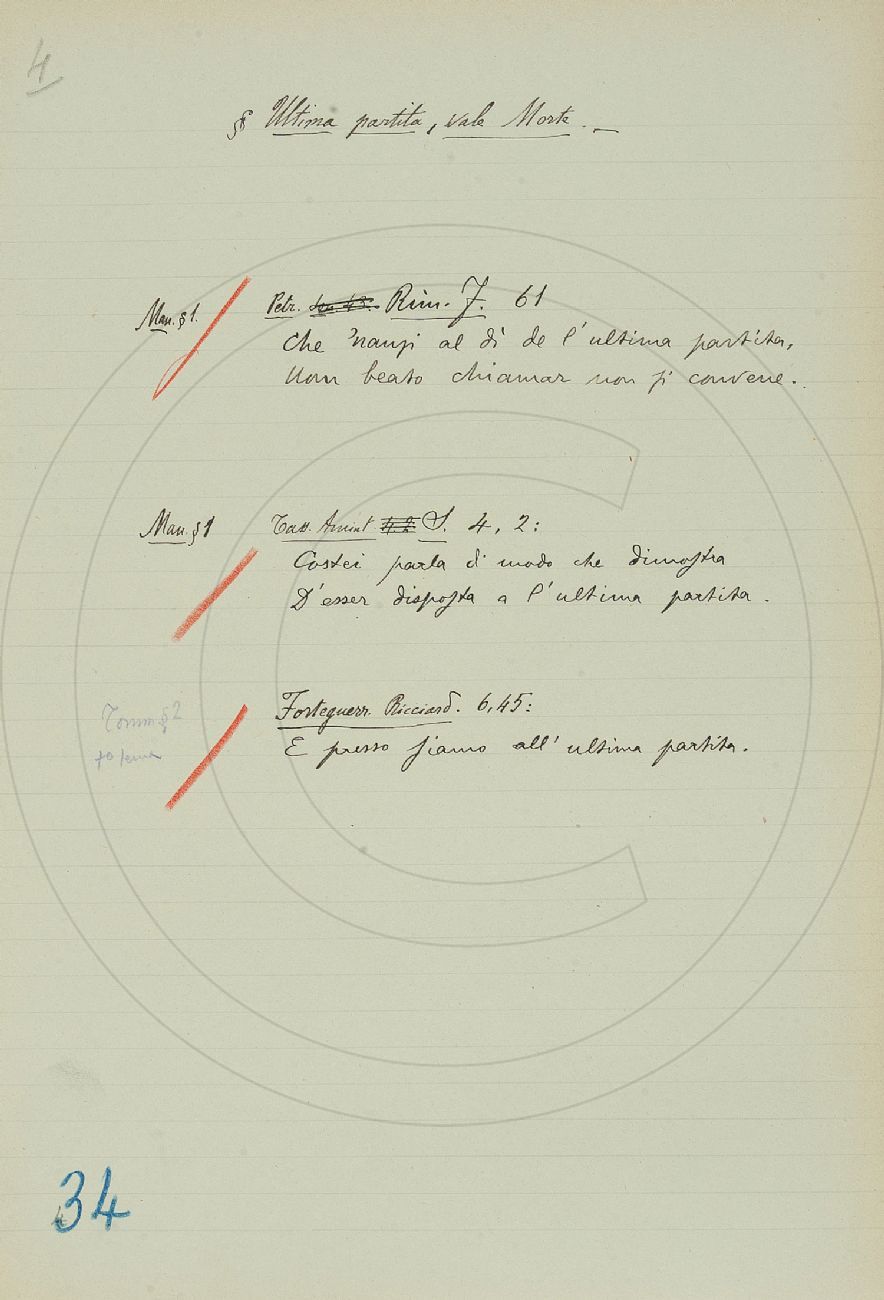 4
§ Ultima partita, vale Morte. —
Man. § 1. Petr. Rim. I. 61
Che 'nanzi al dì de l'ultima partita,
Uom beato chiamar non si convene.
Man. § 1 Tass. Amint. S. 4, 2:
Costei parla di modo che dimostra
D'esser disposta a l'ultima partita.
Tomm. § 2 Forteguerr. Ricciard. 6, 45:
E presso siamo all'ultima partita.
34